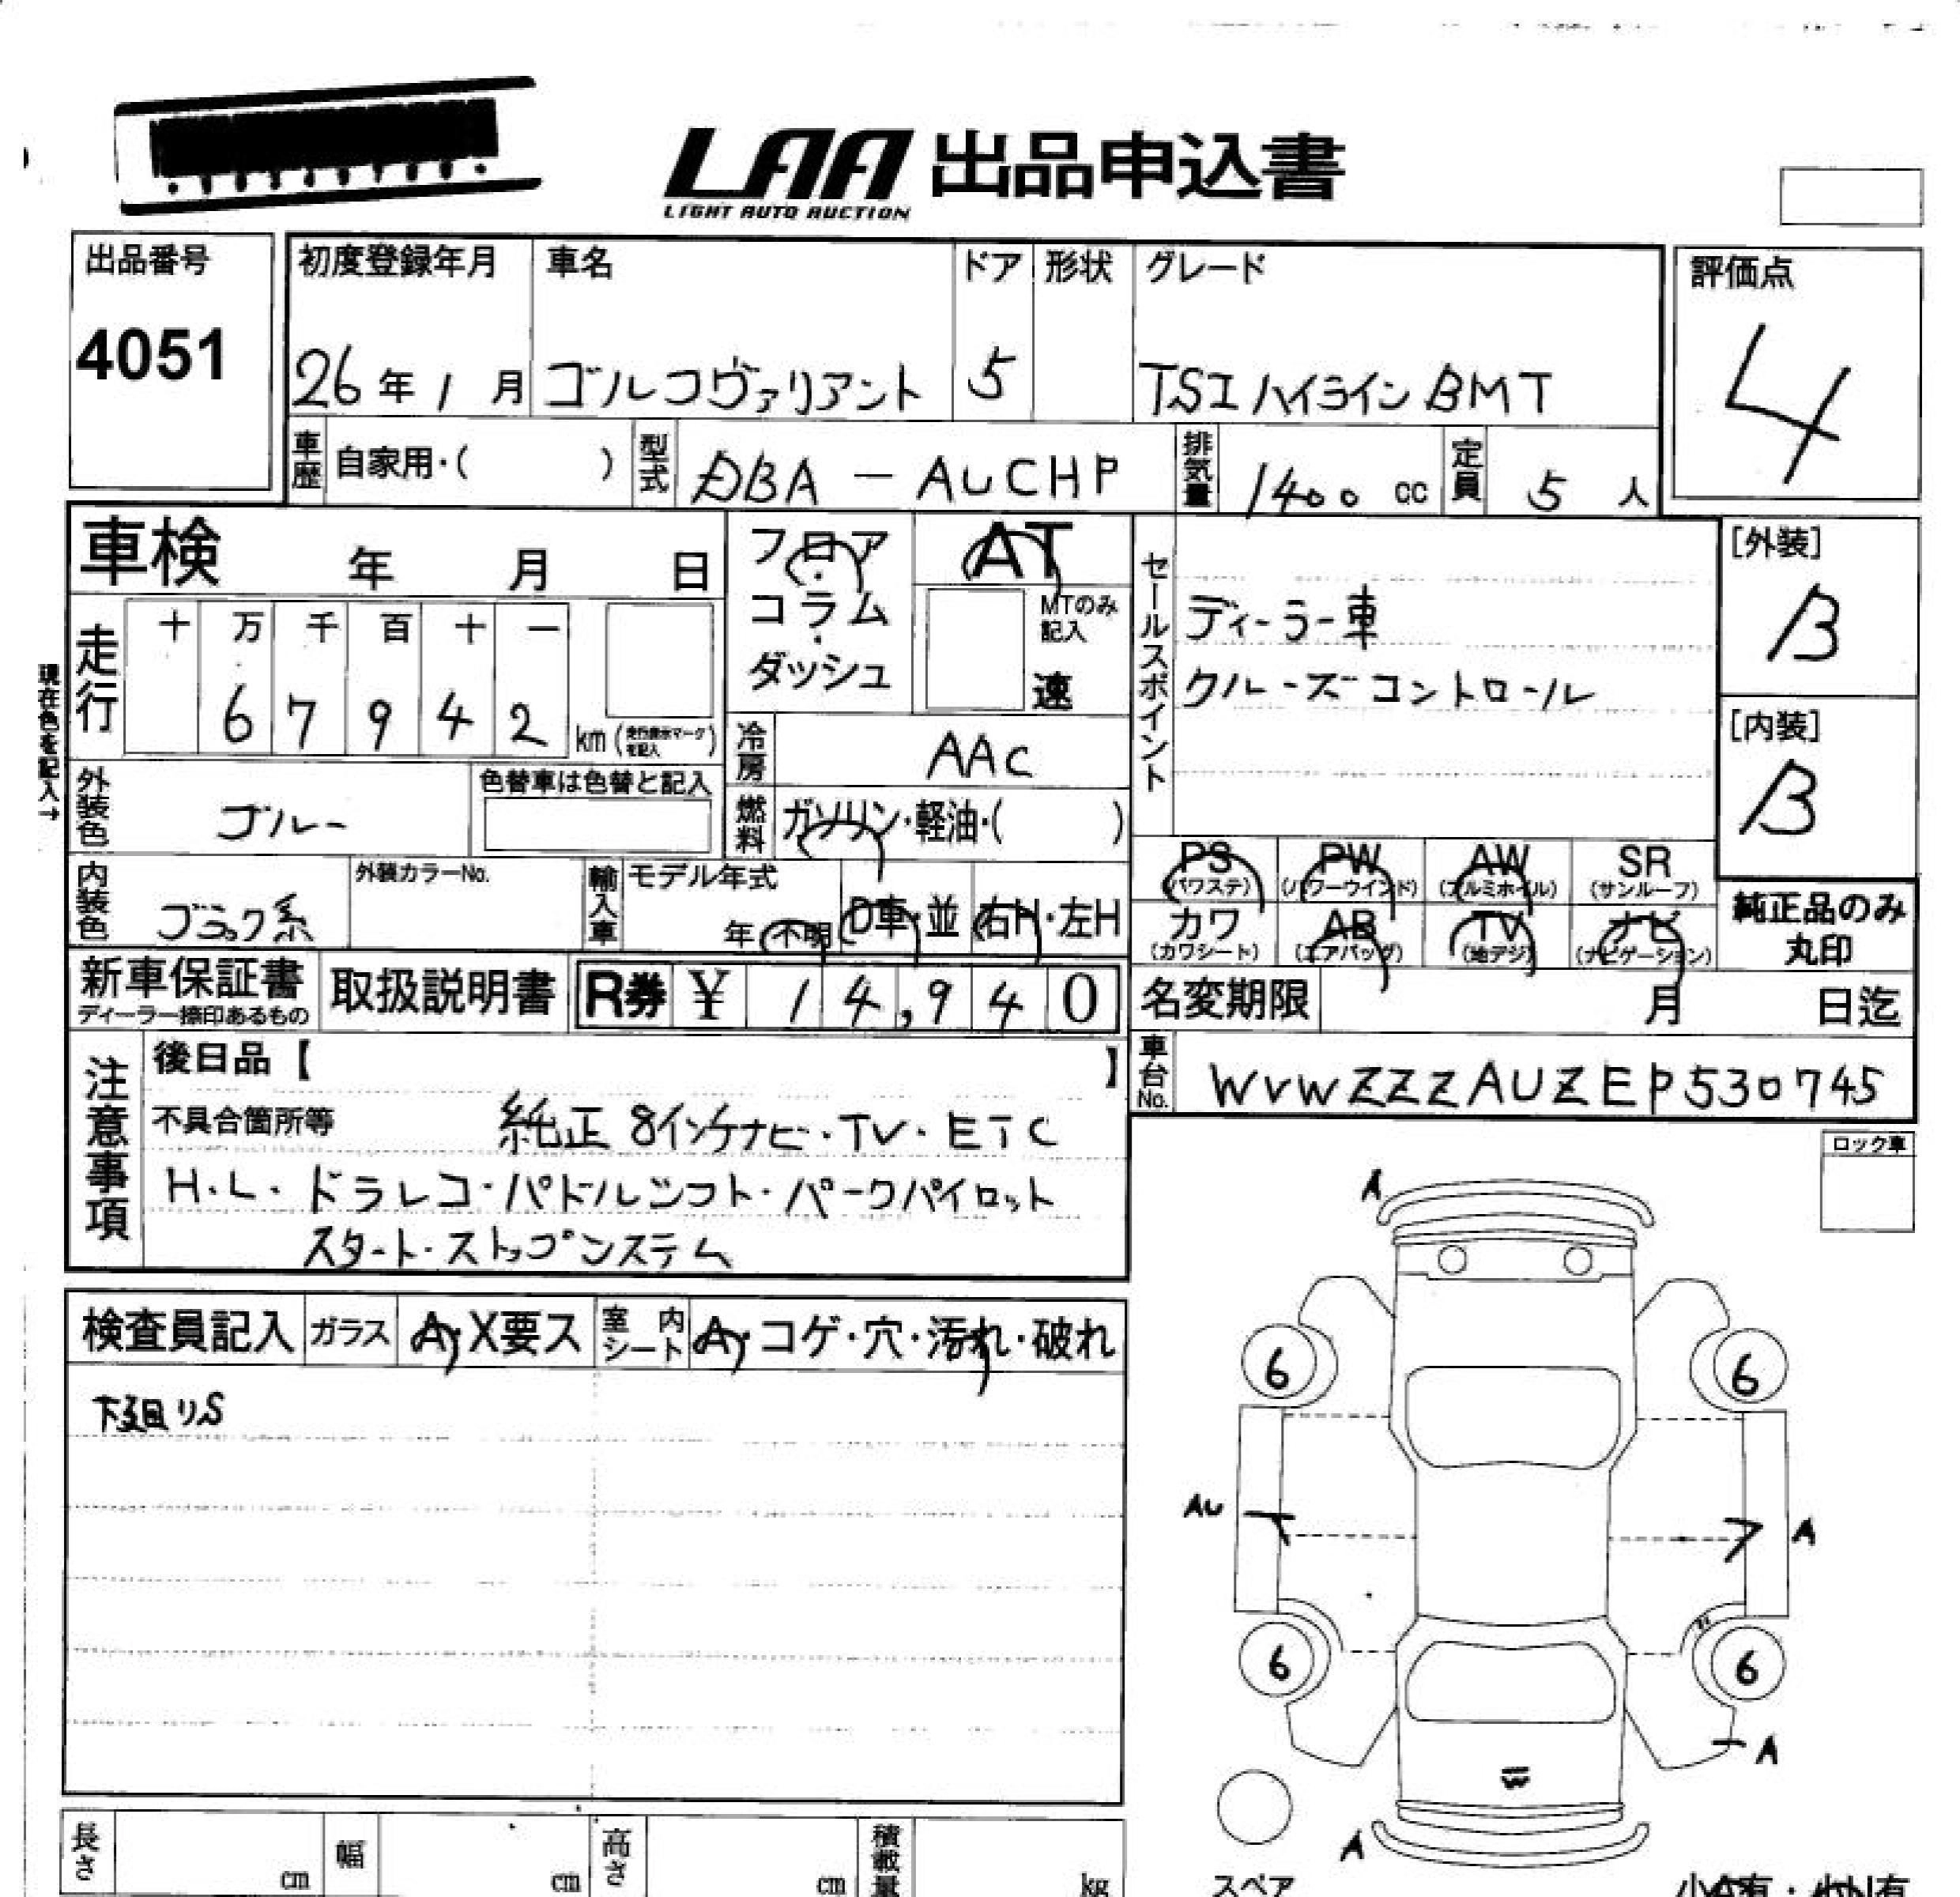 LAA 出品申込書
LIGHT AUTO AUCTION
出品番号
4051
初度登録年月
26年1月
車名
ゴルフヴァリアント
ドア
5
形状
グレード
TSIハイラインBMT
評価点
4
車歴 自家用・( )
型式 DBA-AUCHP
排気量 1400cc
定員 5人
車検 年 月 日
フロア・コラム・ダッシュ
AT
MTのみ記入
速
セールスポイント
ディーラー車
クルーズコントロール
[外装]
B
[内装]
B
現在色を記入→
走行
十 万 千 百 十 一
6 7 9 4 2 km (走行表示マークを記入)
冷房 AAC
外装色 ブルー
色替車は色替と記入
燃料 ガソリン・軽油・( )
内装色 ブラック系
外装カラーNo.
輸入車
モデル年式
年・不明 D車・並 右H・左H
PS(パワステ) PW(パワーウインド) AW(アルミホイル) SR(サンルーフ)
カワ(カワシート) AB(エアバッグ) TV(地デジ) ナビ(ナビゲーション)
純正品のみ
丸印
新車保証書
ディーラー捺印あるもの
取扱説明書
R券 ¥ 14,940
名変期限 月 日迄
車台No. WVWZZZAUZEP530745
注意事項
後日品【 】
不具合箇所等 純正8インチナビ・TV・ETC
H.L.ドラレコ・パドルシフト・パークパイロット
スタート・ストップシステム
ロック車
検査員記入 ガラス A・X要ス 室内シート A・コゲ・穴・汚れ・破れ
下廻りS
A
6 6
AU A
6 6
A
A
長さ cm 幅 cm 高さ cm 積載量 kg
スペア